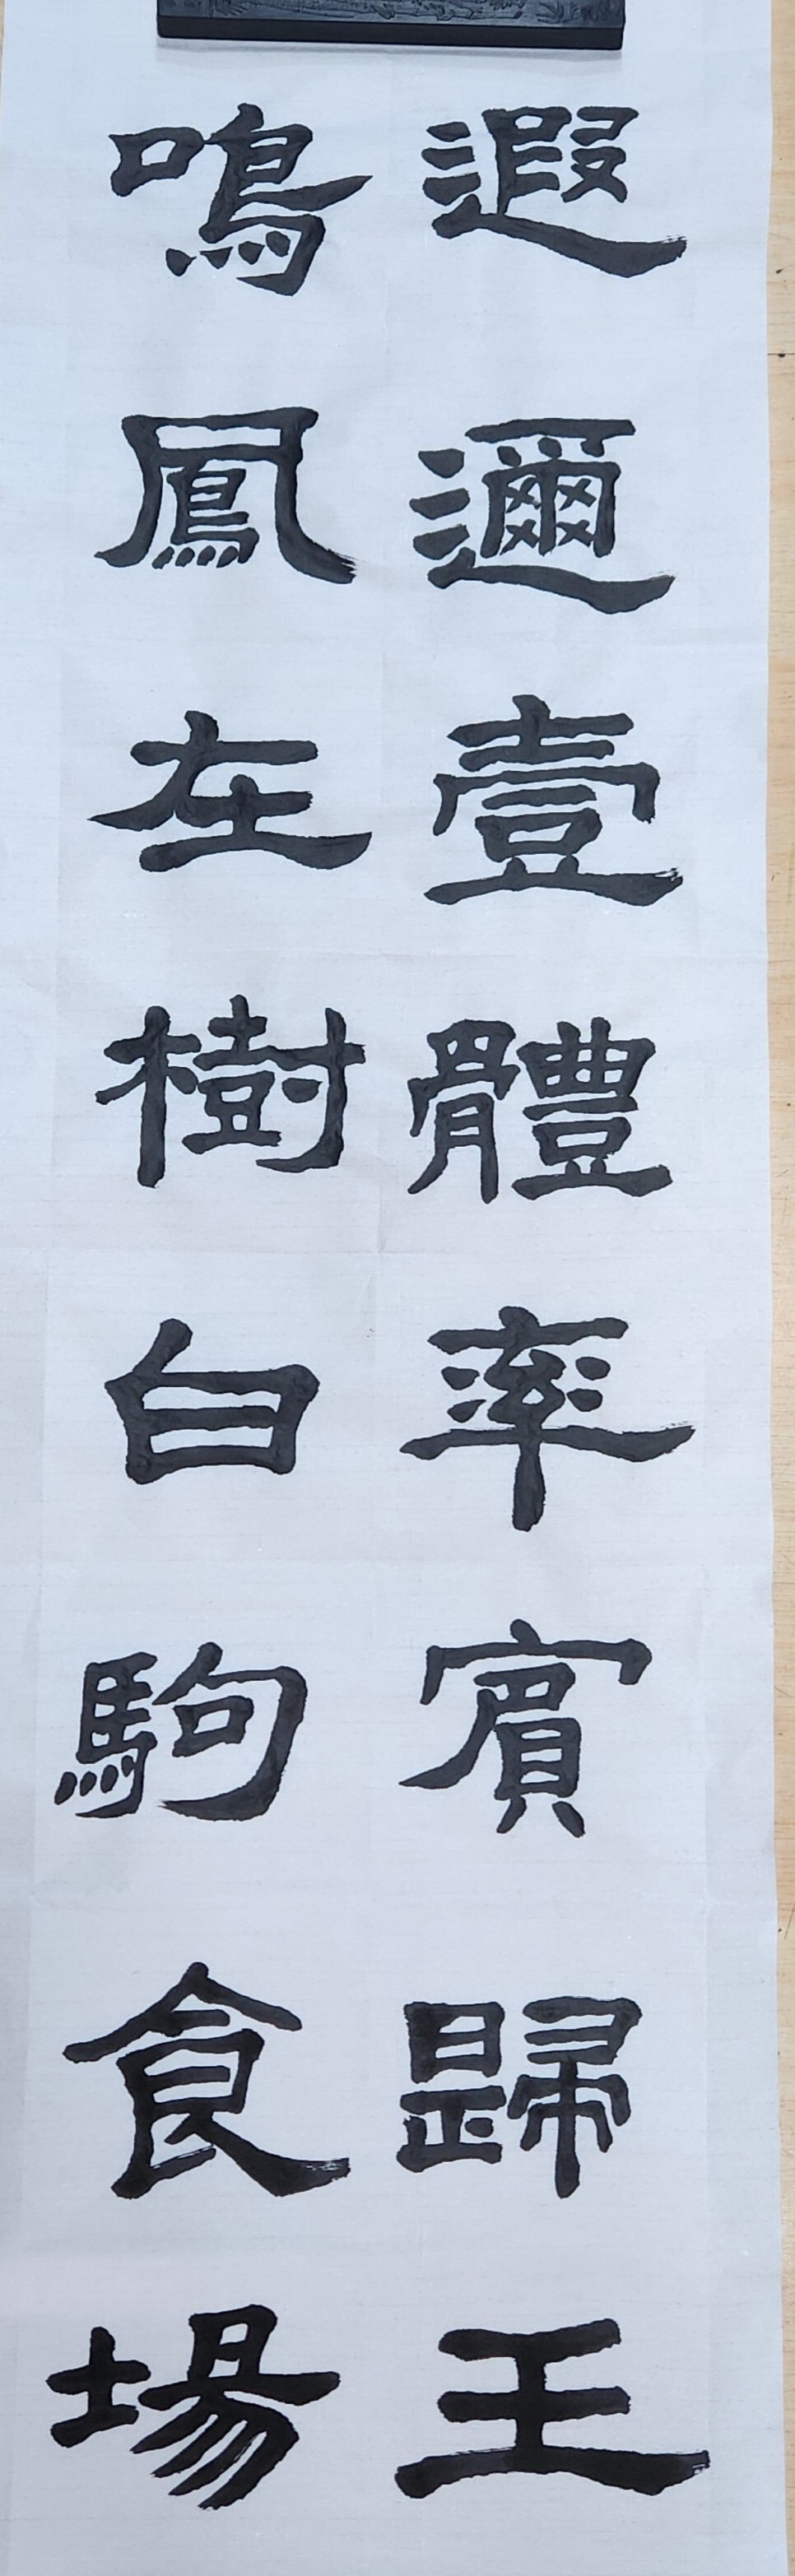 遐邇壹體率賓歸王
鳴鳳在樹白駒食場